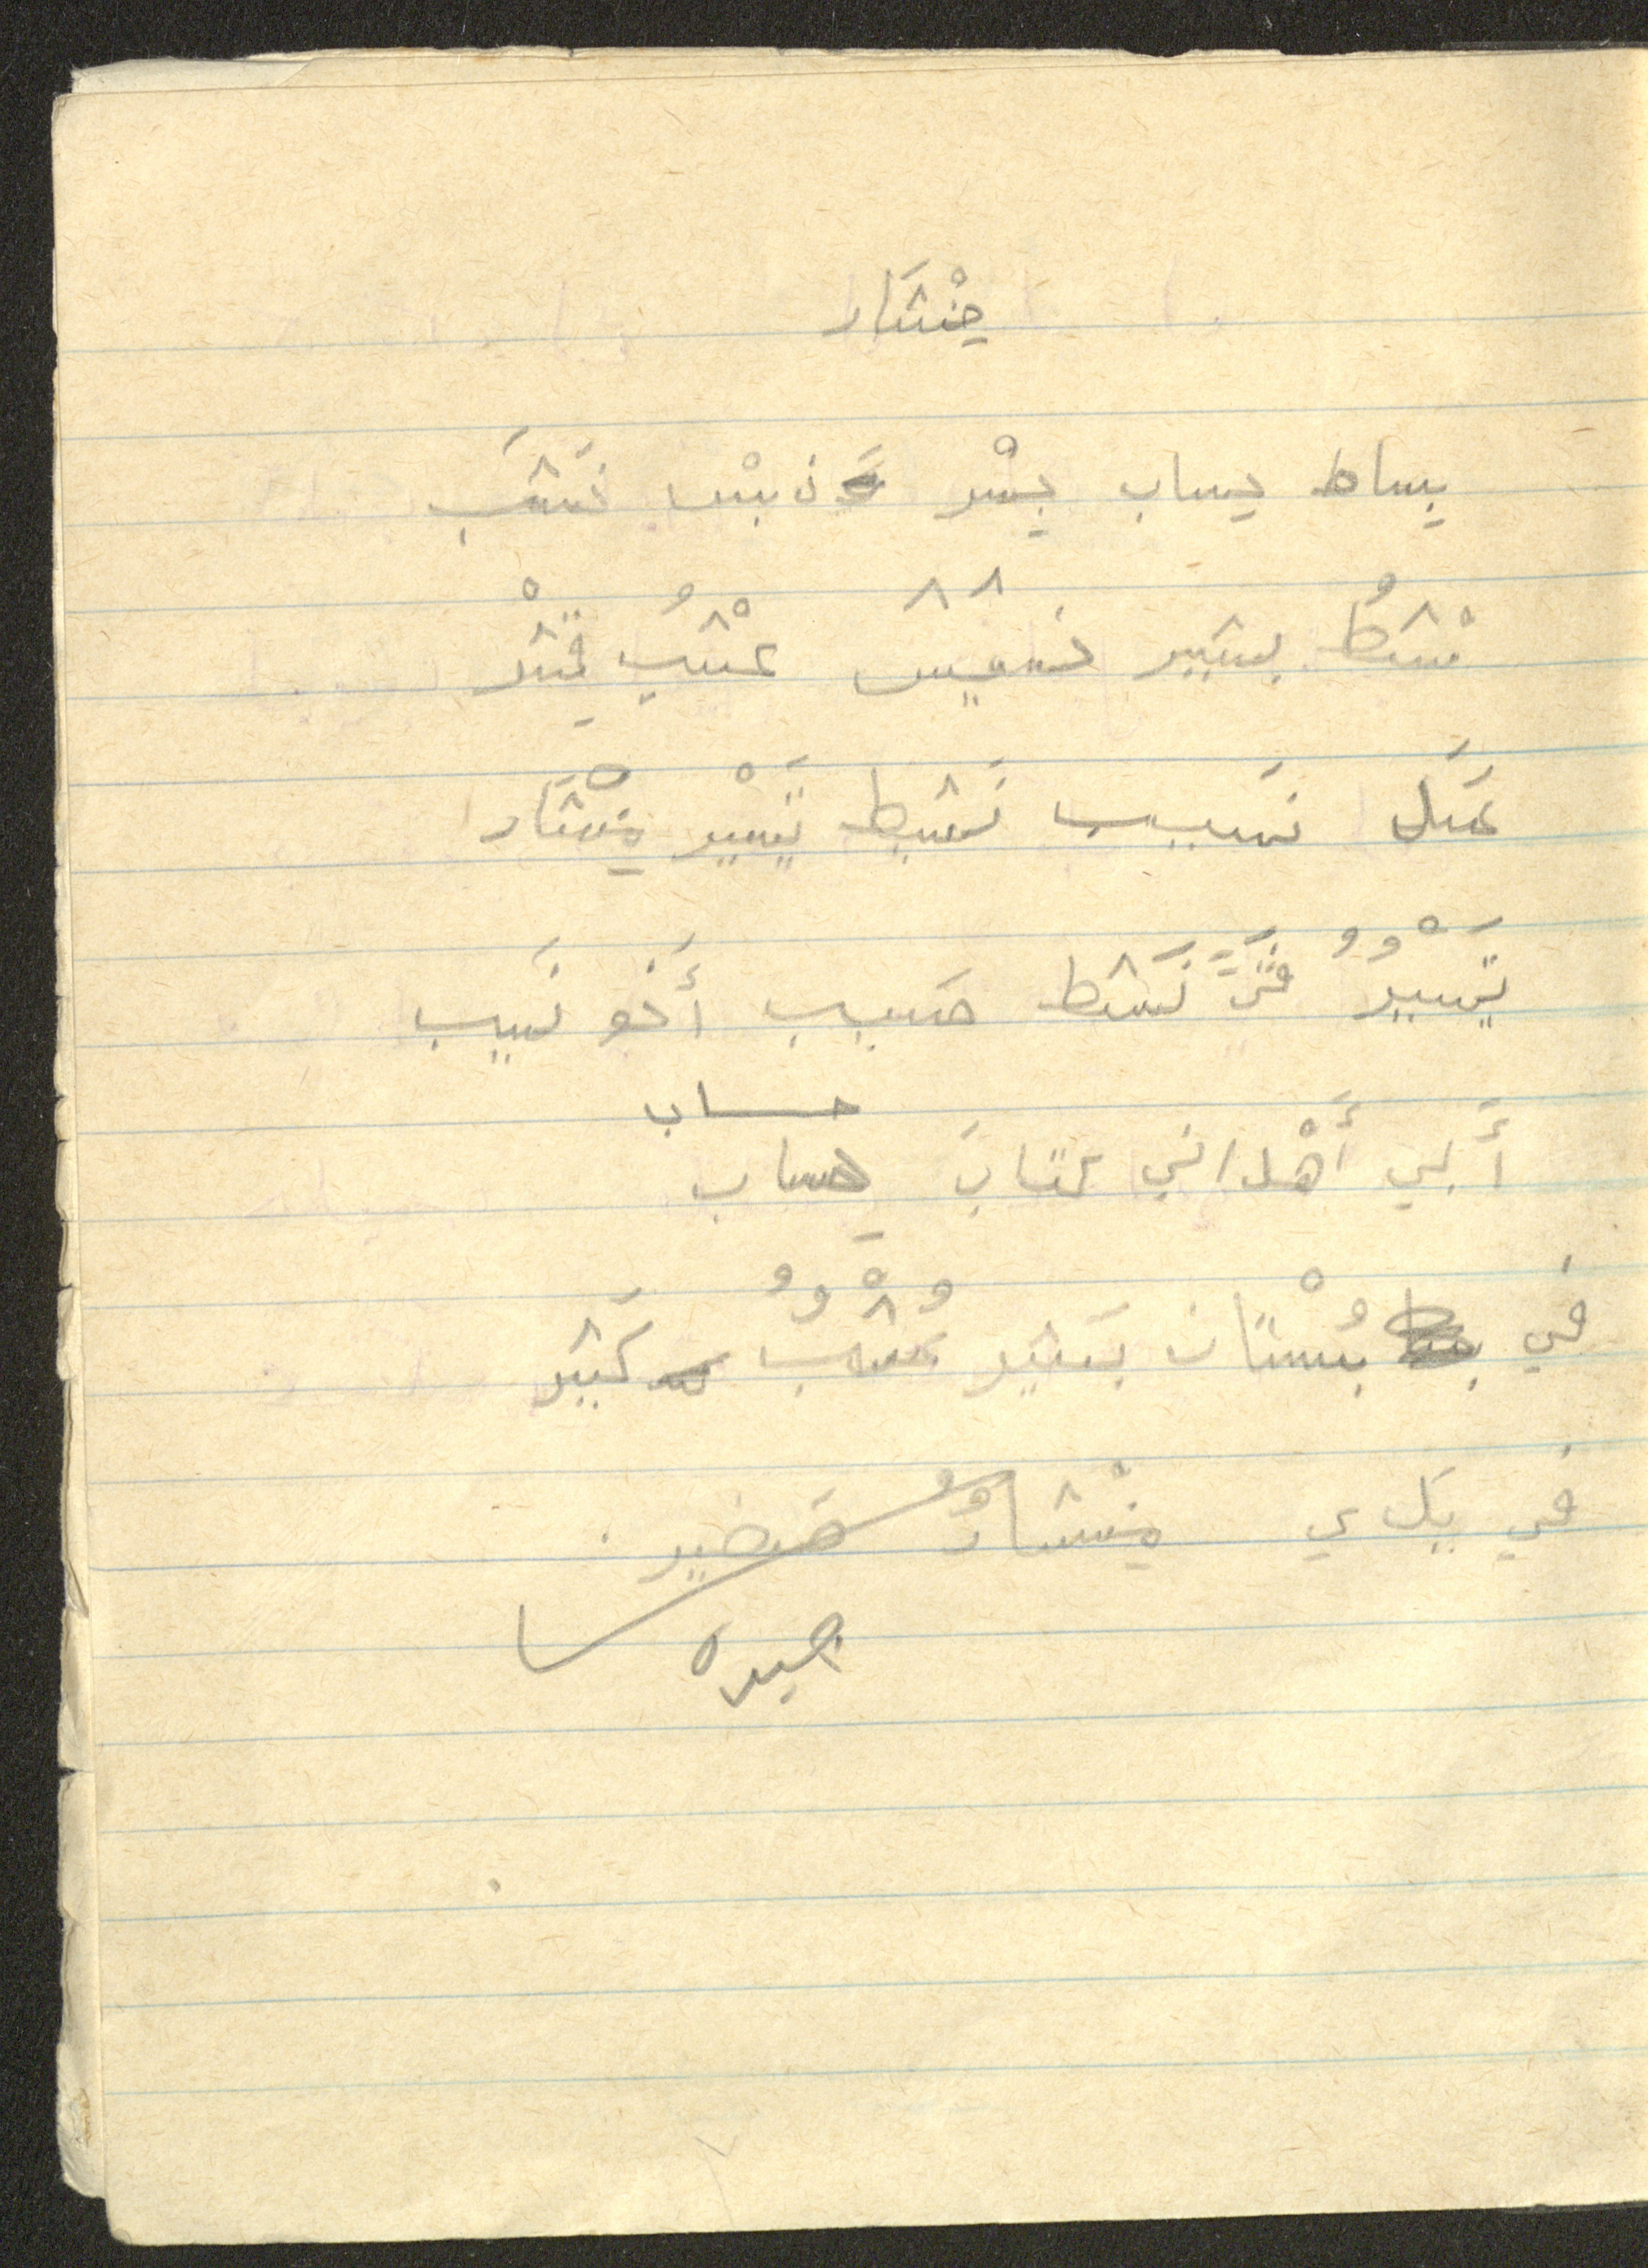 مِنْشَار
بساط حِساب جِسْر نبْس خَشَب
نَشِيط بشير خسيس عُشْب قِشْر
عَسَل نَسيب نَشيط تَيْسير مِنْشَار
تَيْسيرُ فَتَىً نَشط حَسيب أَخو نَسيب
حساب
أَبي أَهْداني كتابَ حِساب
في بُسْتان بَشير عُشْبٌ كَثير
في يَدي مِنْشارٌ صَغير.
جيده